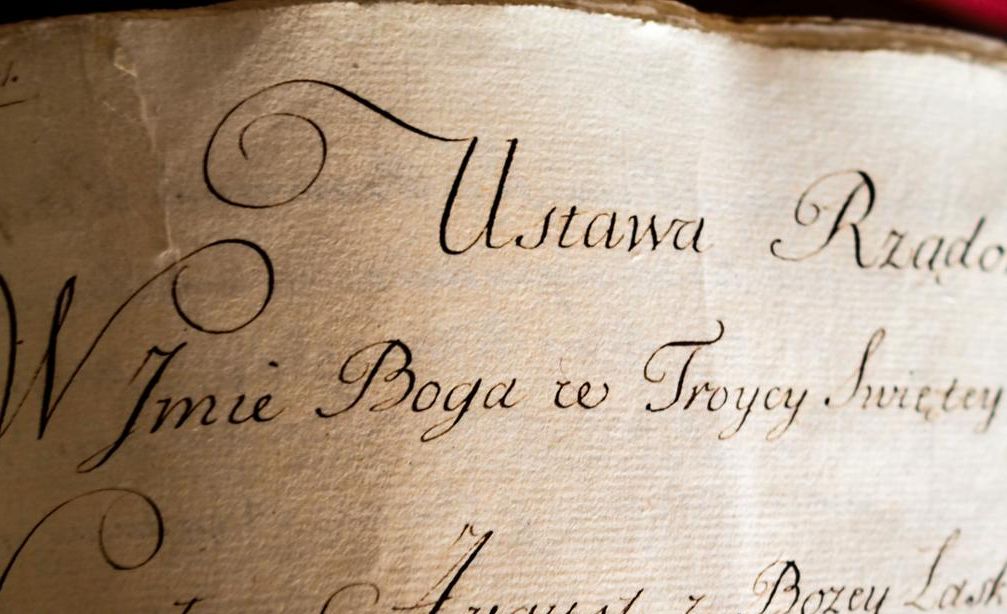 Ustawa Rządo
W Jmie Boga w Troycy Swiętey
August z Bozey Łask